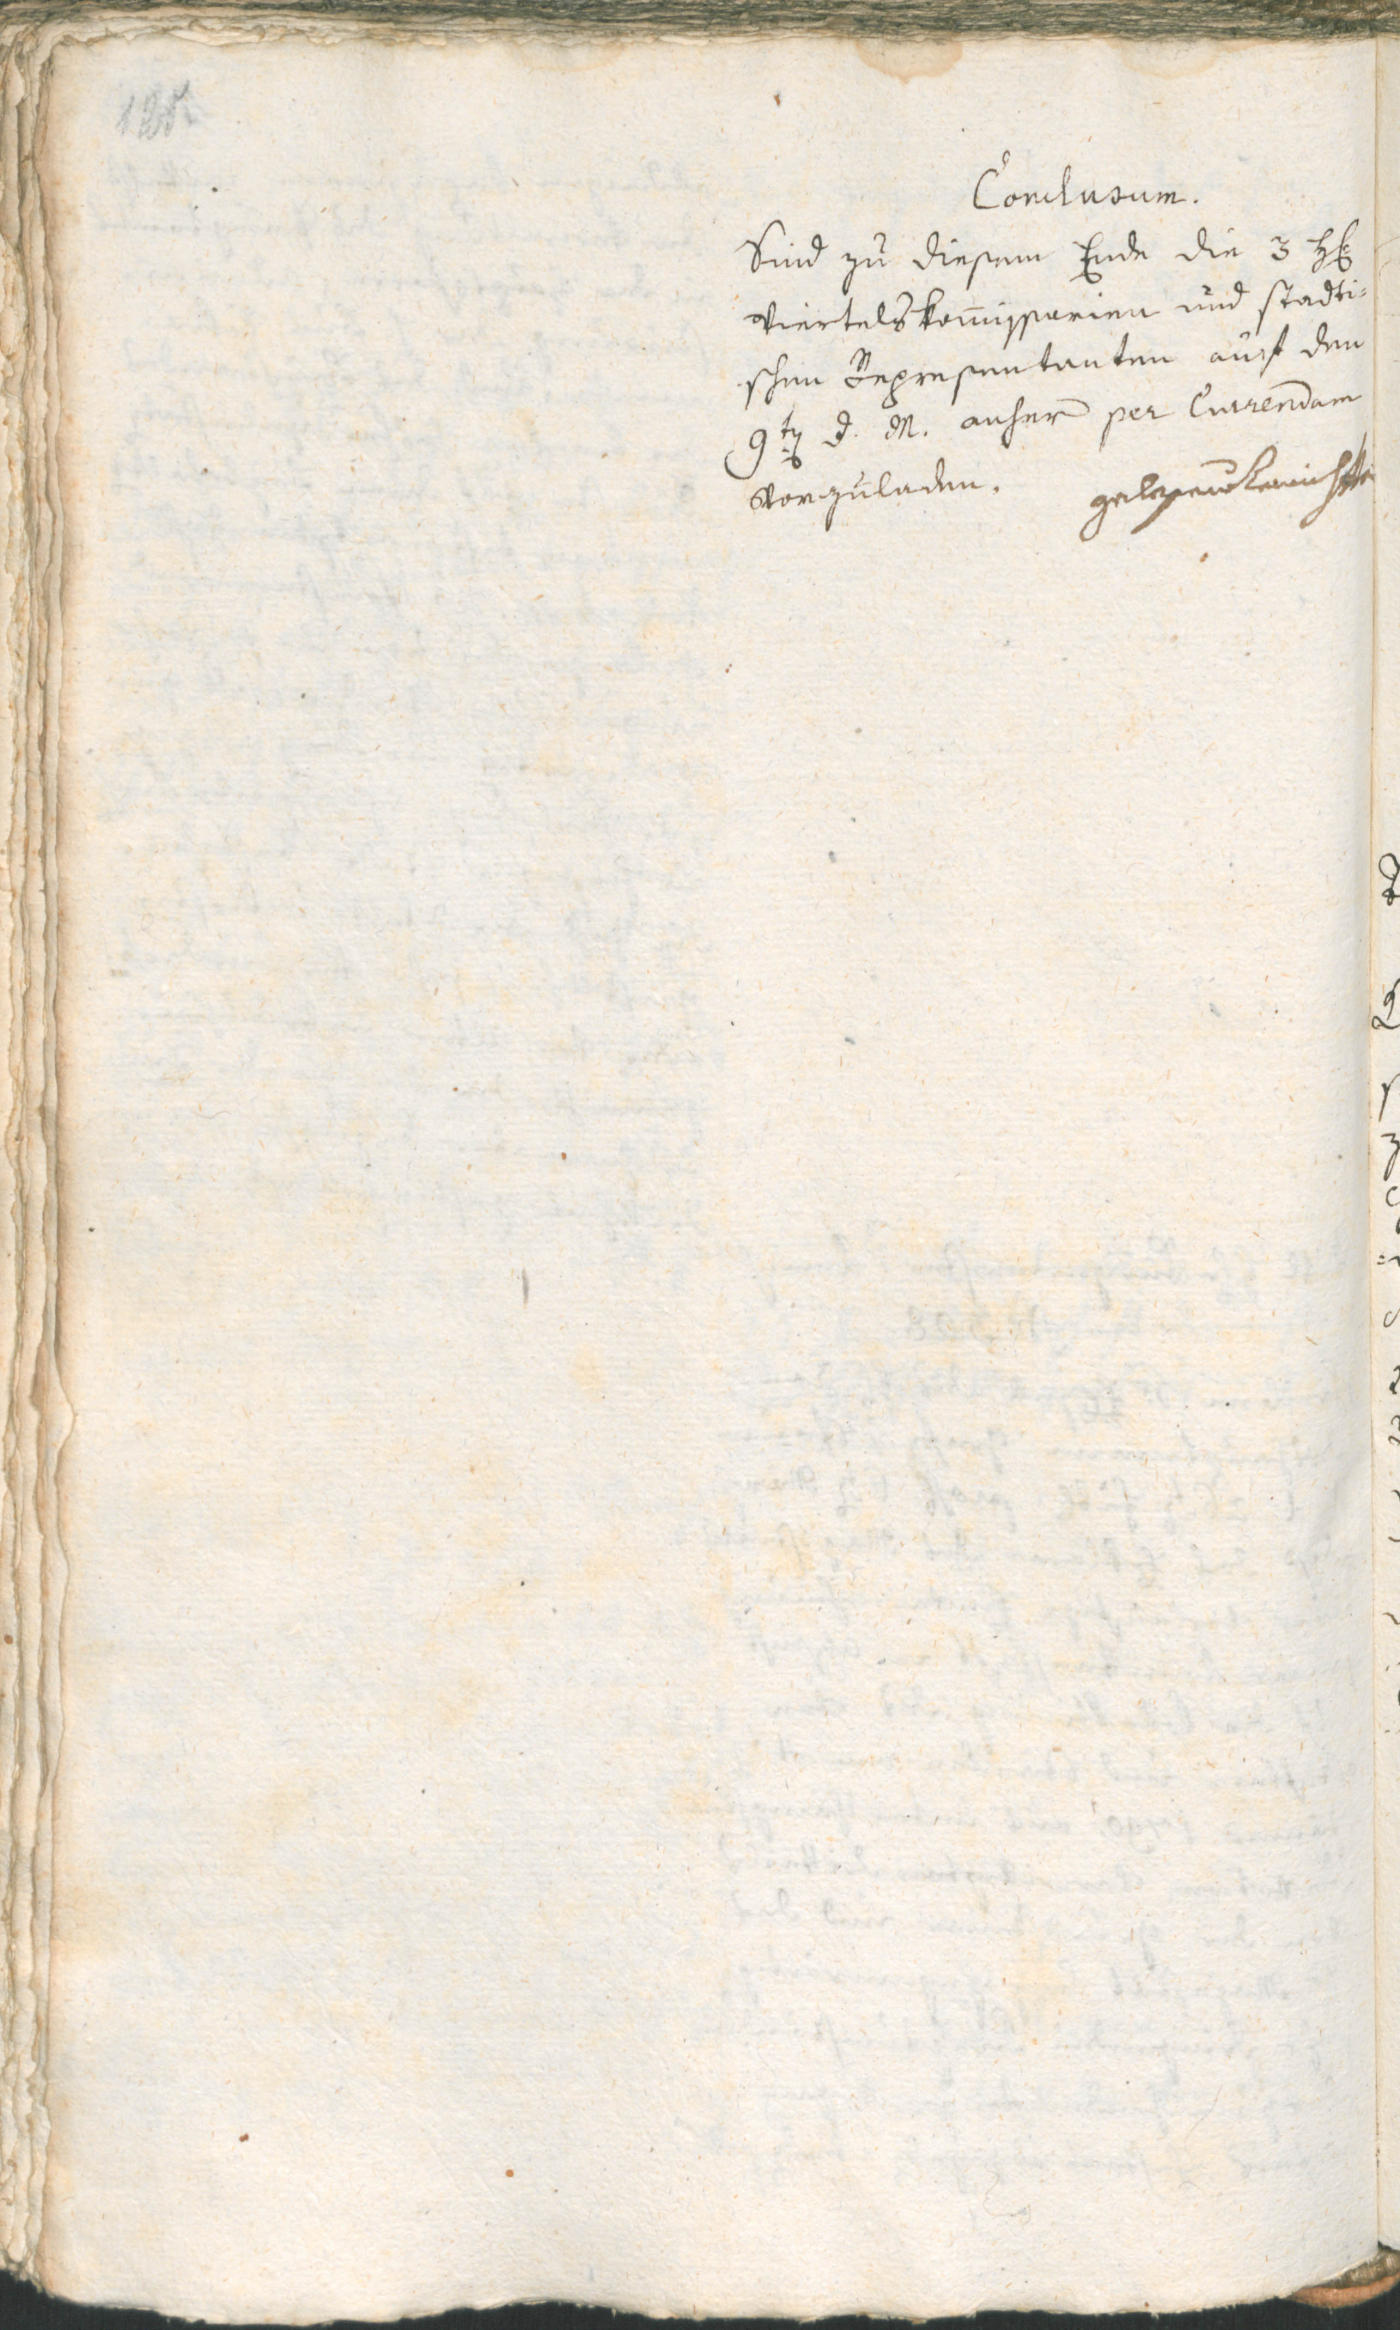 Conclusum.
Sind zu diesem Ende die 3 H̄.
Viertelskom̄issarien und stadti=
schen Repræsentanten auf den
9t̄ d. M. anher per Currendam
vorzuladen.